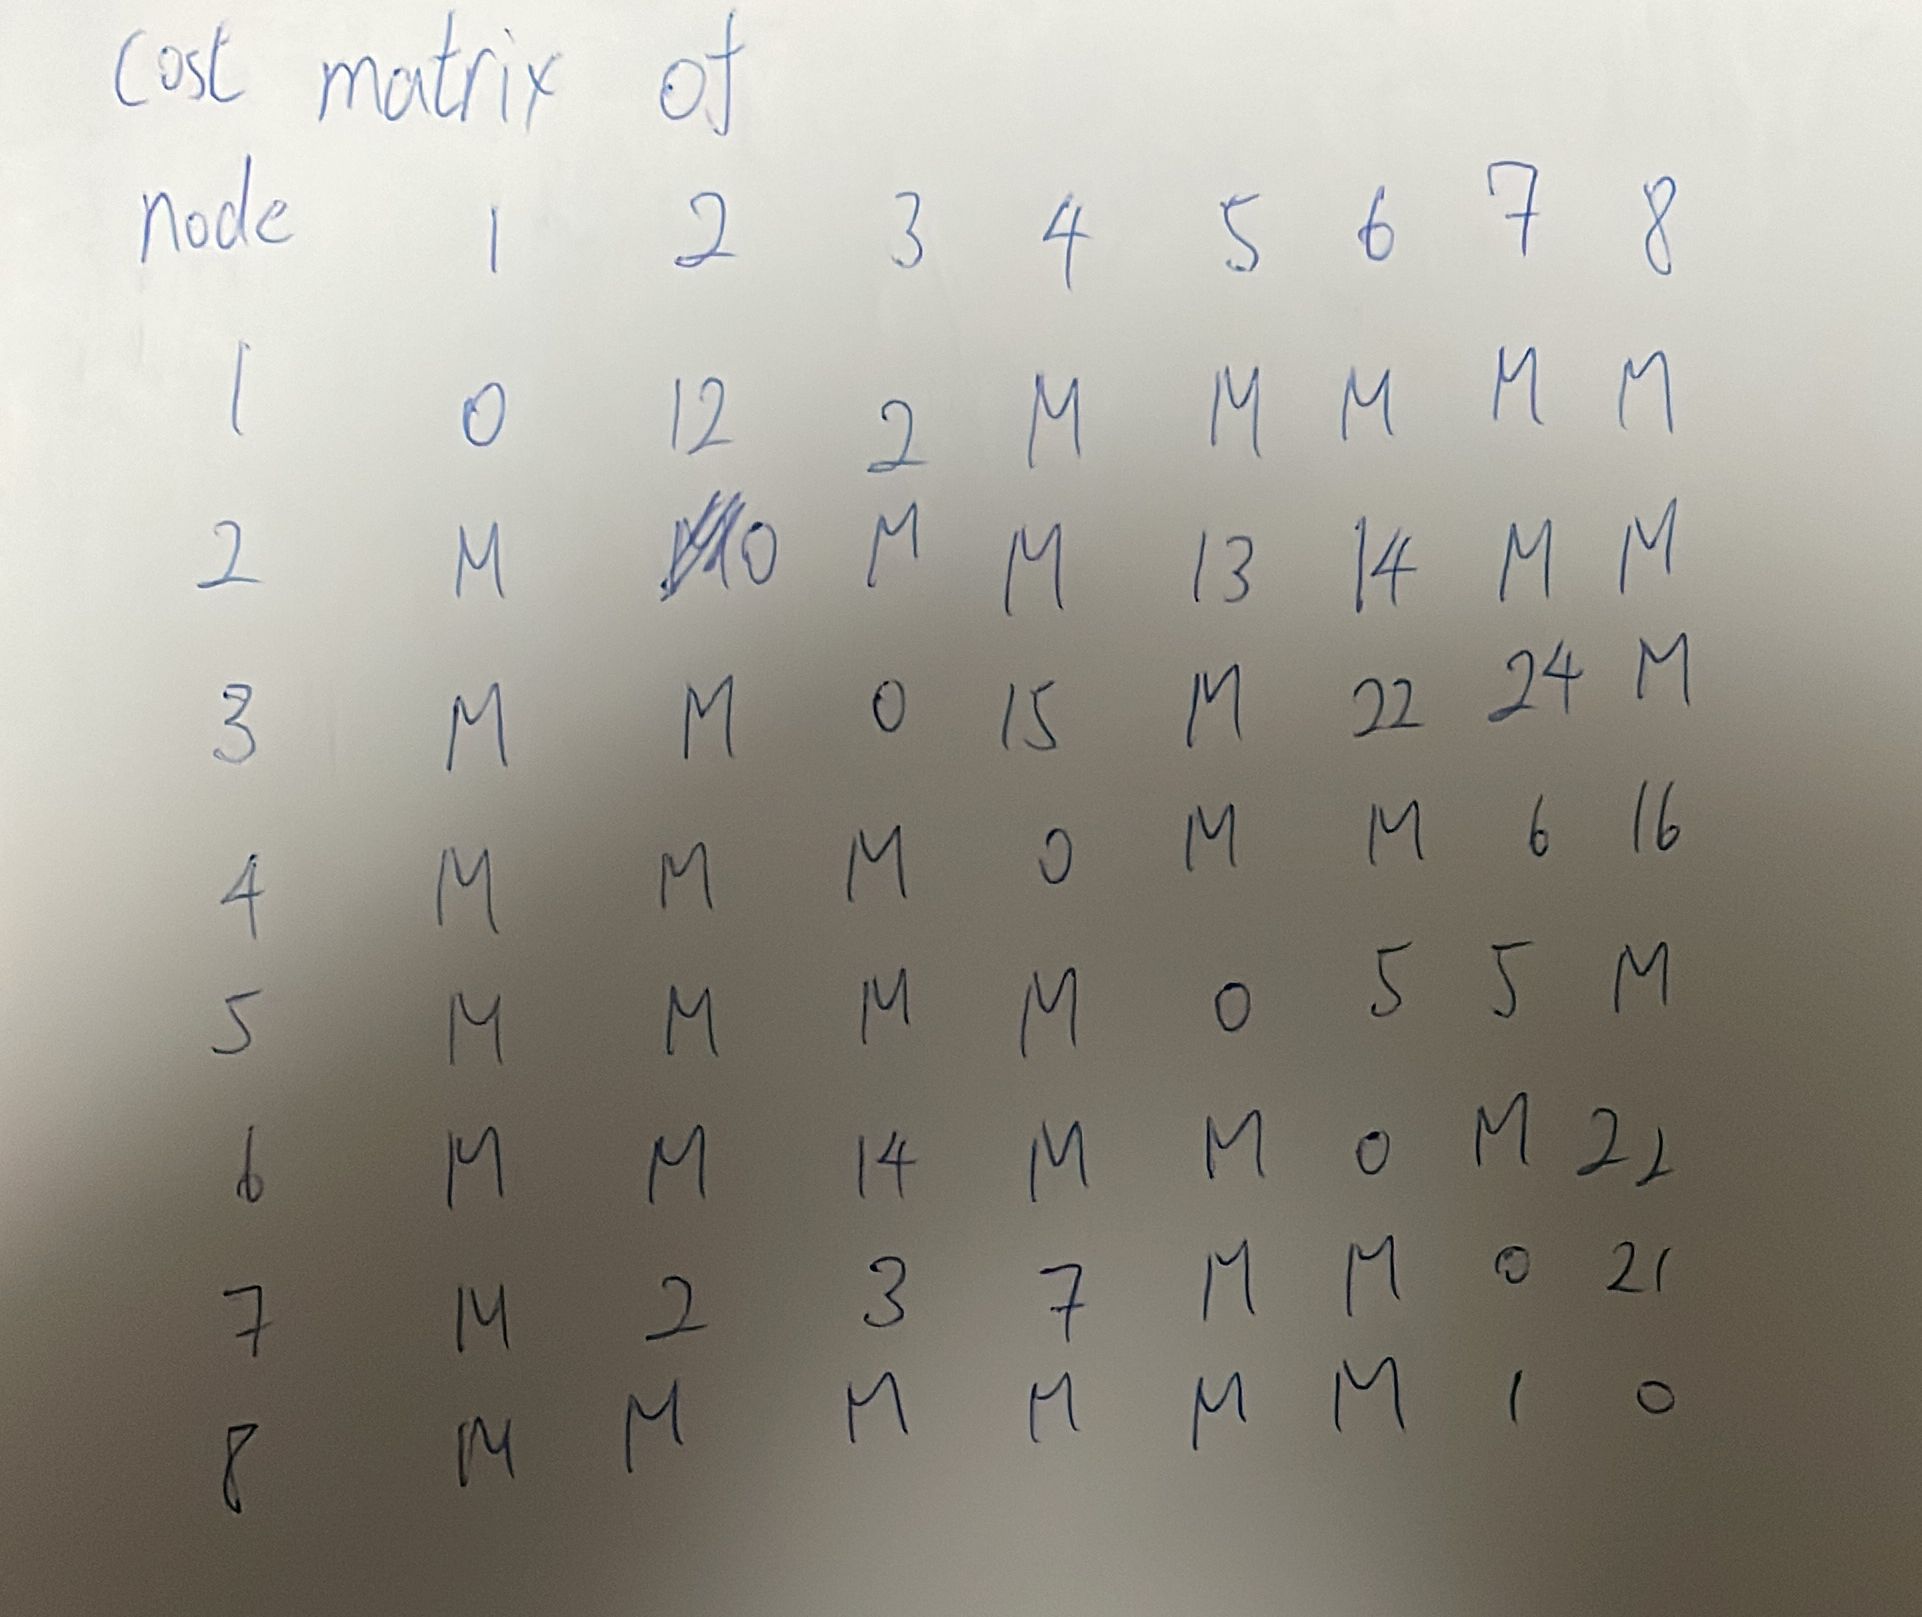 cost matrix of
node 1 2 3 4 5 6 7 8
1 0 12 2 M M M M M
2 M 0 M M 13 14 M M
3 M M 0 15 M 22 24 M
4 M M M 0 M M 6 16
5 M M M M 0 5 5 M
6 M M 14 M M 0 M 22
7 M 2 3 7 M M 0 21
8 M M M M M M 1 0